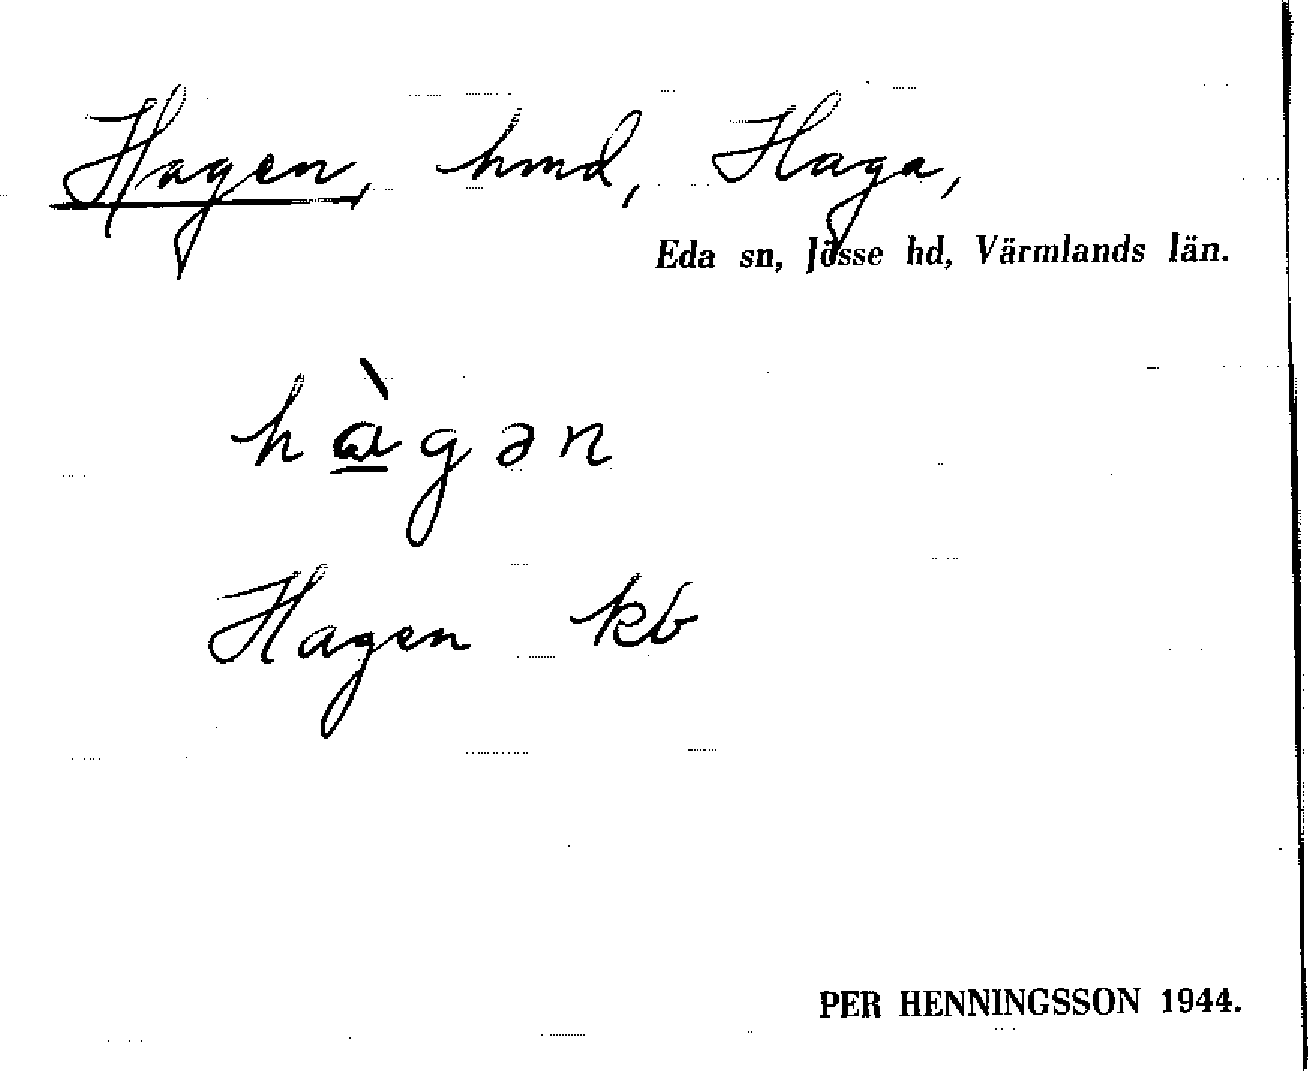 Hagen, hmd, Haga,
Eda sn, Jösse hd, Värmlands län.
hὰ̲gən
Hagen kb
PER HENNINGSSON 1944.